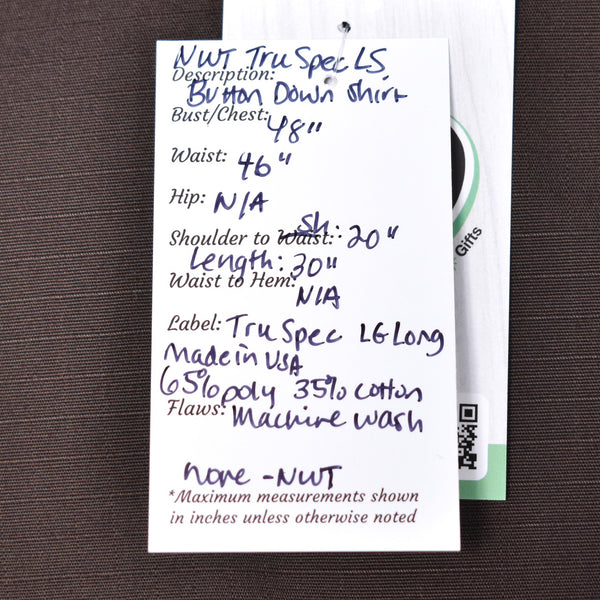 NWT TruSpec LS
Description:
Button Down Shirt
Bust/Chest: 48"
Waist: 46"
Hip: N/A
Shoulder to Waist: Sh: 20"
Length: 30"
Waist to Hem: N/A
Label: TruSpec LG Long
Made in USA
65% poly 35% cotton
Flaws: Machine wash
none - NWT
*Maximum measurements shown
in inches unless otherwise noted
Gifts